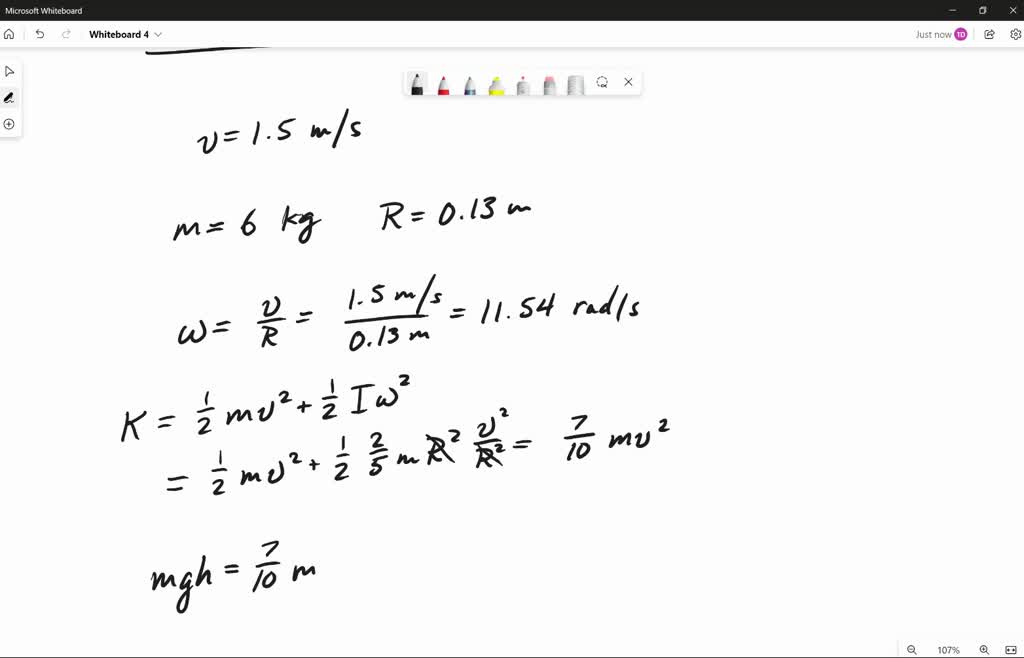 Microsoft Whiteboard
Whiteboard 4
Just now TD
v = 1.5 m/s
m = 6 kg R = 0.13 m
ω = v/R = 1.5 m/s / 0.13 m = 11.54 rad/s
K = 1/2 mv² + 1/2 Iω²
= 1/2 mv² + 1/2 2/5 mR² v²/R² = 7/10 mv²
mgh = 7/10 m
107%